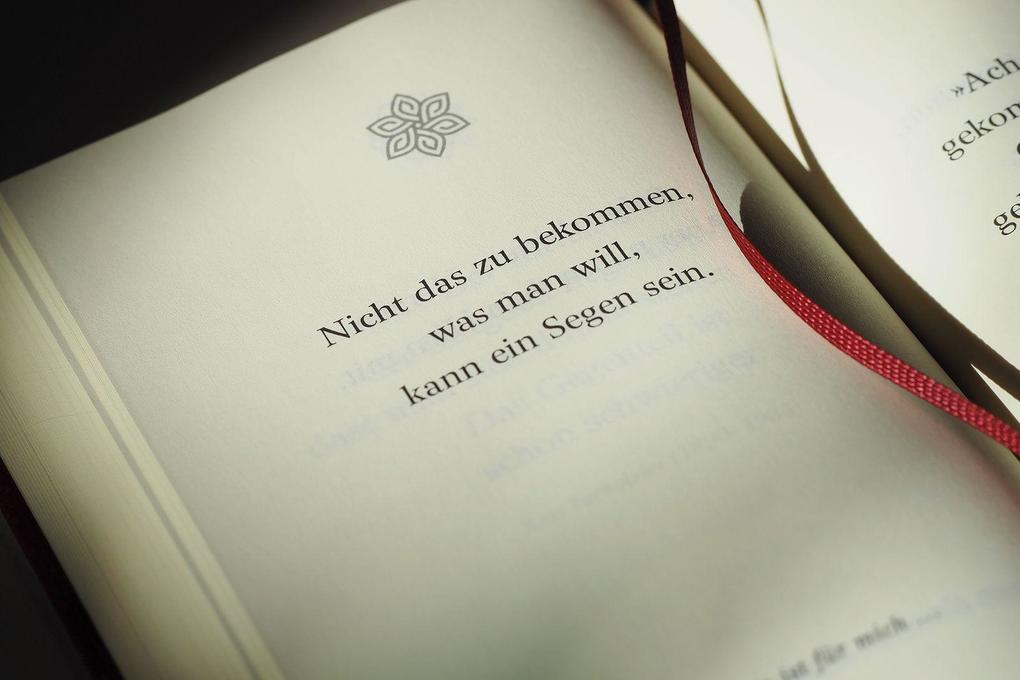 Nicht das zu bekommen,
was man will,
kann ein Segen sein.
ist für mich ...
»Ach
gekom